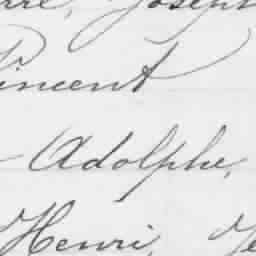 Joseph
Vincent
Adolphe,
Henri,